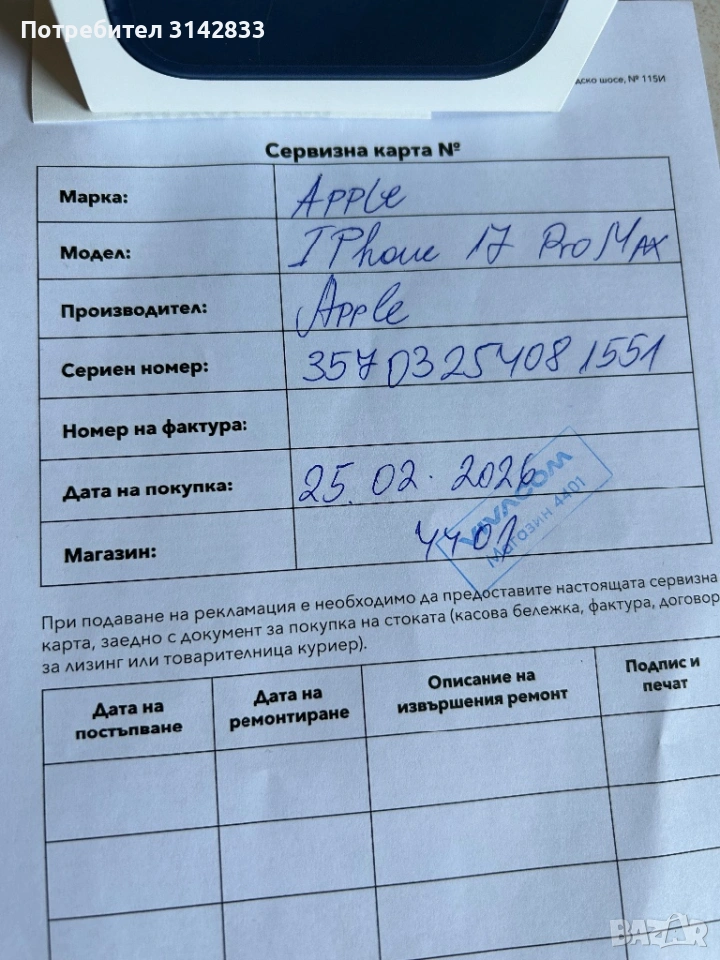 Потребител 3142833
дско шосе, № 115И
Сервизна карта №
Марка: Apple
Модел: IPhone 17 Pro Max
Производител: Apple
Сериен номер: 357032540811551
Номер на фактура:
Дата на покупка: 25.02.2026
VIVACOM
Магазин 4401
Магазин: 4401
При подаване на рекламация е необходимо да предоставите настоящата сервизна
карта, заедно с документ за покупка на стоката (касова бележка, фактура, договор
за лизинг или товарителница куриер).
Дата на постъпване
Дата на ремонтиране
Описание на извършения ремонт
Подпис и печат
BAZAR